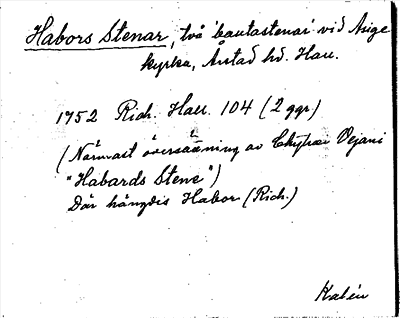 Habors Stenar, två 'bautastenar' vid Asige
kyrka, Årstad hd. Hall.
1752 Rich. Hall. 104 (2 ggr.)
(Närmast översättning av Chytræi Vejani
"Habards Stene")
Där hängdis Habor (Rich.)
Kalén